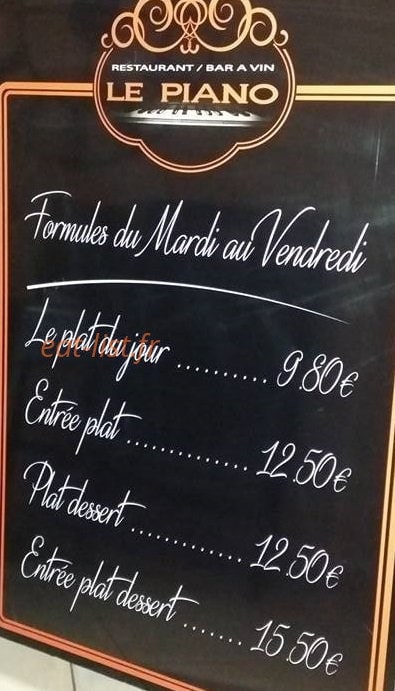 RESTAURANT / BAR A VIN
LE PIANO
Formules du Mardi au Vendredi
Le plat du jour .......... 9.80€
eat-list.fr
Entrée plat ............. 12.50€
Plat dessert ............ 12.50€
Entrée plat dessert ....... 15.50€